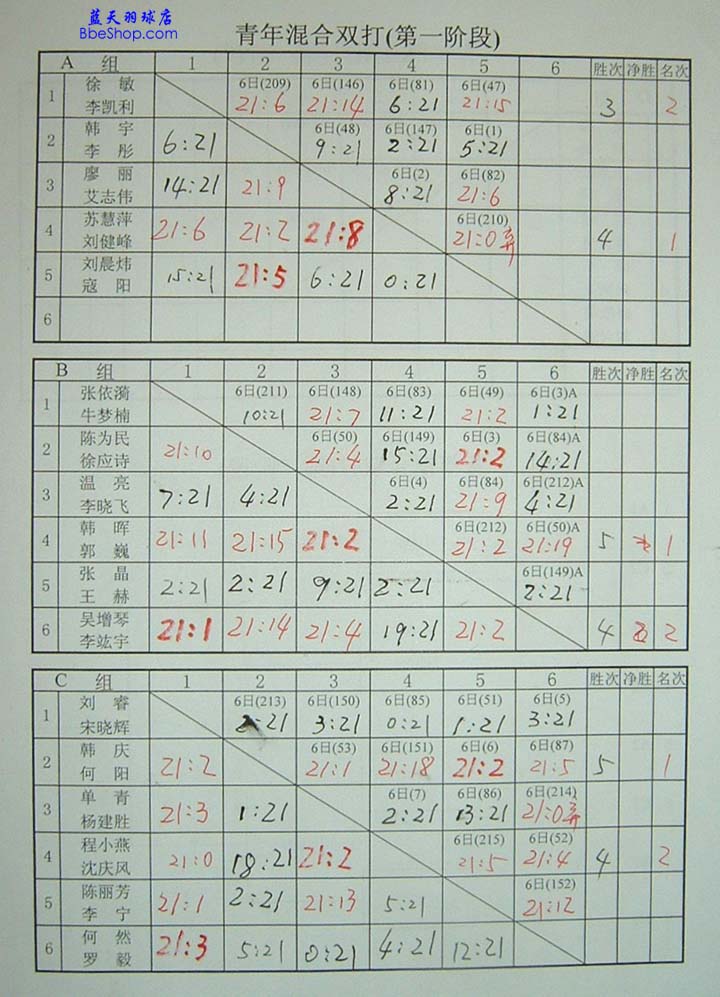 蓝天羽球店
BbeShop.com
青年混合双打(第一阶段)
A 组 1 2 3 4 5 6 胜次 净胜 名次
1 徐 敏 6日(209) 6日(146) 6日(81) 6日(47)
李凯利 21:6 21:14 6:21 21:15 3 2
2 韩 宇 6日(48) 6日(147) 6日(1)
李 彤 6:21 9:21 2:21 5:21
3 廖 丽 6日(2) 6日(82)
艾志伟 14:21 21:9 8:21 21:6
4 苏慧萍 6日(210)
刘健峰 21:6 21:2 21:8 21:0弃 4 1
5 刘晨炜
寇 阳 15:21 21:5 6:21 0:21
6
B 组 1 2 3 4 5 6 胜次 净胜 名次
1 张依漪 6日(211) 6日(148) 6日(83) 6日(49) 6日(3)A
牛梦楠 10:21 21:7 11:21 21:2 1:21
2 陈为民 6日(50) 6日(149) 6日(3) 6日(84)A
徐应诗 21:10 21:4 15:21 21:2 14:21
3 温 亮 6日(4) 6日(84) 6日(212)A
李晓飞 7:21 4:21 2:21 21:9 4:21
4 韩 晖 6日(212) 6日(50)A
郭 巍 21:11 21:15 21:2 21:2 21:19 5 1
5 张 晶 6日(149)A
王 赫 2:21 2:21 9:21 2:21 2:21
6 吴增琴
李竑宇 21:1 21:14 21:4 19:21 21:2 4 2
C 组 1 2 3 4 5 6 胜次 净胜 名次
1 刘 睿 6日(213) 6日(150) 6日(85) 6日(51) 6日(5)
宋晓辉 2:21 3:21 0:21 1:21 3:21
2 韩 庆 6日(53) 6日(151) 6日(6) 6日(87)
何 阳 21:2 21:1 21:18 21:2 21:5 5 1
3 单 青 6日(7) 6日(86) 6日(214)
杨建胜 21:3 1:21 2:21 13:21 21:0弃
4 程小燕 6日(215) 6日(52)
沈庆风 21:0 18:21 21:2 21:5 21:4 4 2
5 陈丽芳 6日(152)
李 宁 21:1 2:21 21:13 5:21 21:12
6 何 然
罗 毅 21:3 5:21 0:21 4:21 12:21